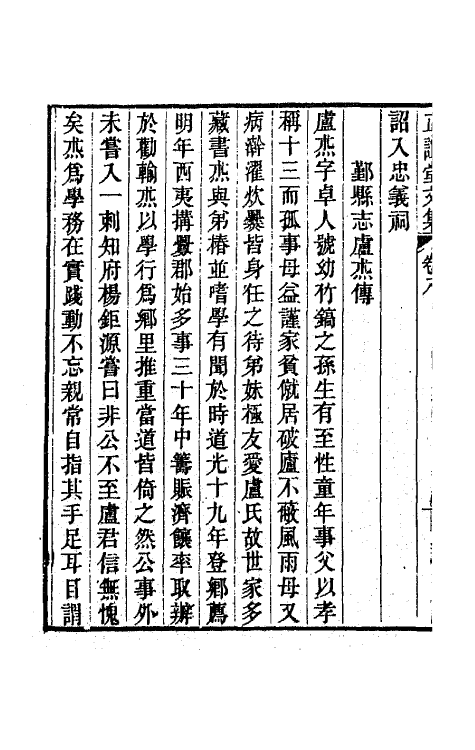 詔入忠義祠
鄞縣志盧杰傳
盧杰字卓人號幼竹鎬之孫生有至性童年事父以孝
稱十三而孤事母益謹家貧僦居破廬不蔽風雨母又
病澣濯炊爨皆身任之待弟妹極友愛盧氏故世家多
藏書杰與弟椿並嗜學有聞於時道光十九年登鄉薦
明年西夷搆釁郡始多事三十年中籌賑濟饟率取辦
於勸輸杰以學行爲鄉里推重當道皆倚之然公事外
未嘗入一刺知府楊鉅源嘗曰非公不至盧君信無愧
矣杰爲學務在實踐動不忘親常自指其手足耳目謂